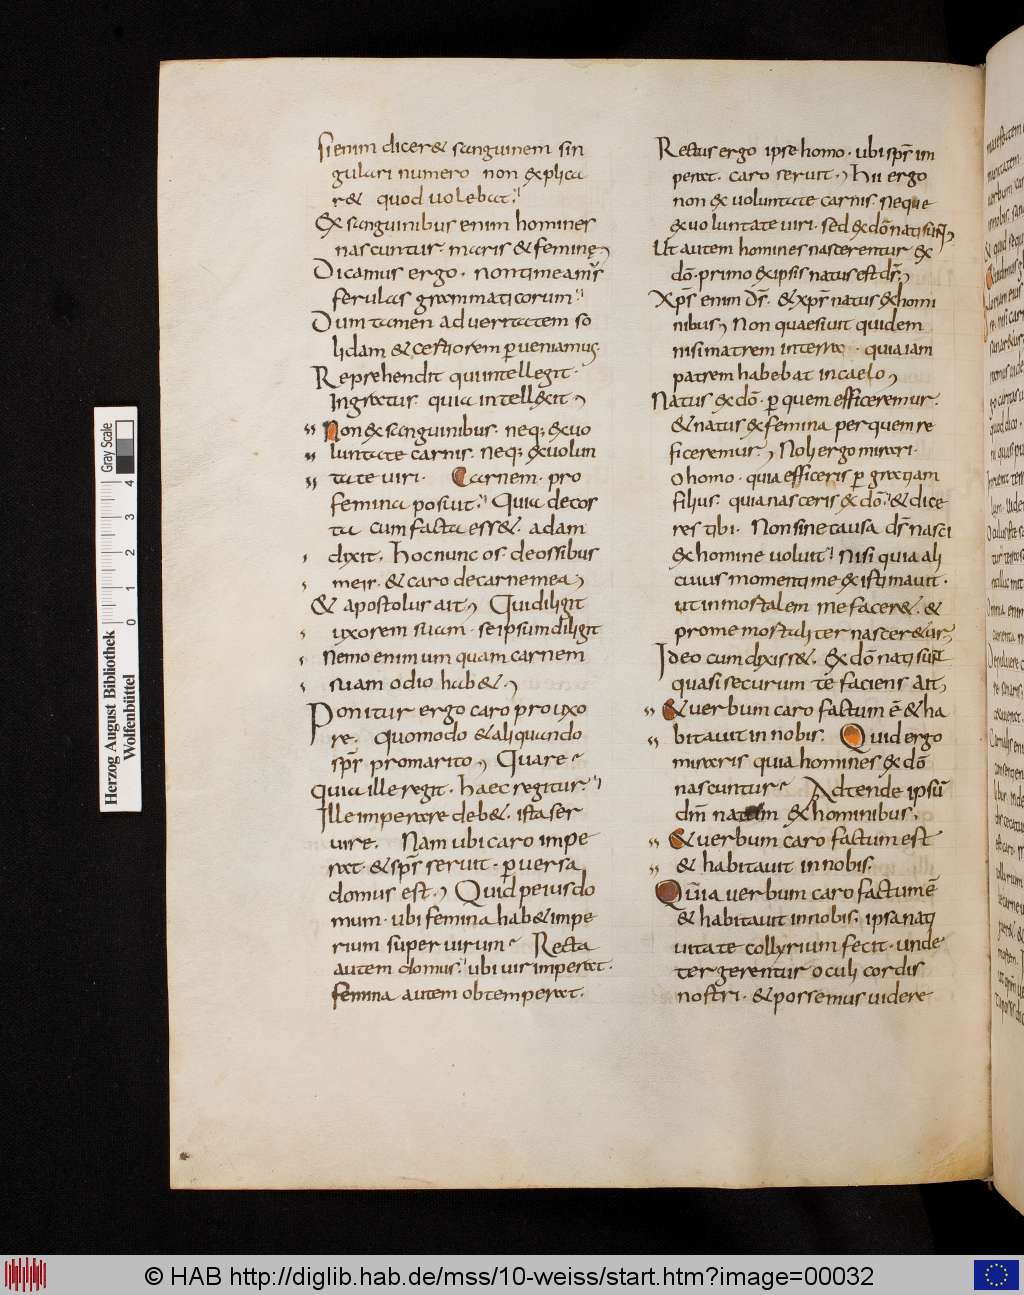 si enim dicer& sanguinem sin
gulari numero non explica
r& quod uolebat;
Ex sanguinibus enim homines
nascuntur. maris & feminę;
Dicamus ergo. non timeam᷑
ferulas grammaticorum;
Dum tamen ad ueritatem so
lidam & certiorem ꝑueniamus.
Reprehendit qui intellegit.
Ingratus. quia intellexit;
Non ex sanguinibus. neq; ex uo
luntate carnis. neq; ex uolun
tate uiri. Carnem. pro
femina posuit; Quia de cos
ta cum facta ess&. adam
dixit. Hoc nunc os de ossibus
meis. & caro de carne mea;
& apostolus ait; Qui diligit
uxorem suam. se ipsum diligit
Nemo enim umquam carnem
suam odio hab&;
Ponitur ergo caro pro uxo
re. Quomodo & aliquando
sp̄s pro marito; Quare
Quia ille regit. haec regitur;
Ille imperare deb&. ista ser
uire. Nam ubi caro impe
rat. & sp̄s seruit. ꝑuersa
domus est; Quid peius do
mum. ubi femina hab& impe
rium super uirum Recta
autem domus; ubi uir imperat.
femina autem obtemperat.
Rectus ergo ipse homo. ubi sp̄s im
perat. caro seruit; Hii ergo
non ex uoluntate carnis. neque
ex uoluntate uiri. sed ex dō nati sunt;
Ut autem homines nascerentur ex
dō. primo ex ipsis natus est ds̄;
Xp̄s enim ds̄. & xp̄s natus ex homi
nibus; Non quaesiuit quidem
nisi matrem in terra. quia iam
patrem habebat in caelo;
Natus ex dō. ꝑ quem efficeremur.
& natus ex femina per quem re
ficeremur; Noli ergo mirari.
o homo. quia efficeris ꝑ gratiam
filius. quia nasceris ex dō; & dice
res tibi. Non sine causa ds̄ nasci
ex homine uoluit; Nisi quia ali
cuius momenti me existimauit.
ut inmortalem me facer&. &
pro me mortaliter nascer&ur;
Ideo cum dixiss&. ex dō nati sunt
quasi securum te faciens ait;
& uerbum caro factum ē & ha
bitauit in nobis. Quid ergo
miraris quia homines ex dō
nascuntur Adtende ipsū
dm̄ natum ex hominibus;
& uerbum caro factum est
& habitauit in nobis.
Quia uerbum caro factum ē
& habitauit in nobis; ipsa nati
uitate collyrium fecit. unde
tergerentur oculi cordis
nostri. & possemus uidere
Gray Scale
4 3 2 1 0
Herzog August Bibliothek
Wolfenbüttel
© HAB http://diglib.hab.de/mss/10-weiss/start.htm?image=00032